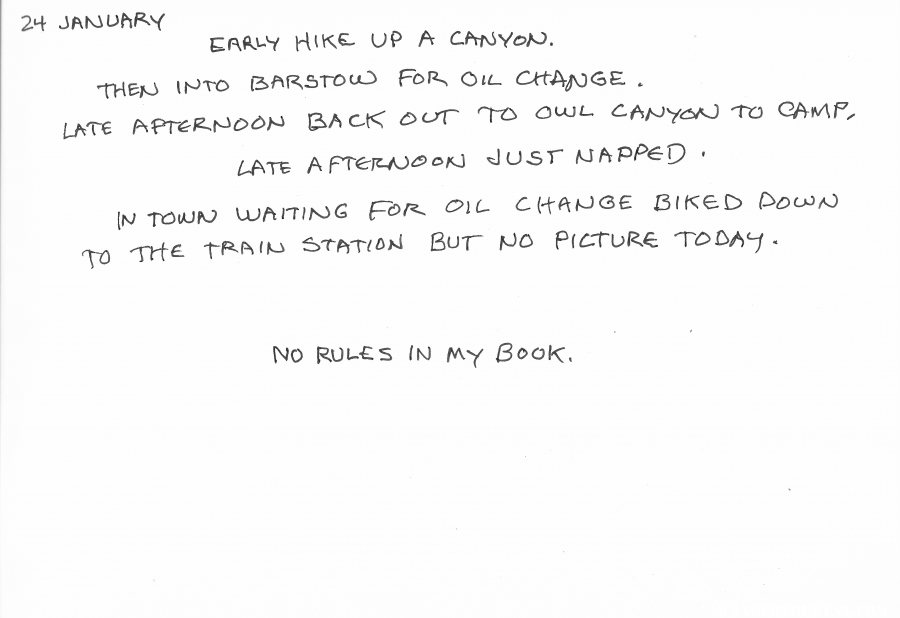 24 JANUARY
EARLY HIKE UP A CANYON.
THEN INTO BARSTOW FOR OIL CHANGE.
LATE AFTERNOON BACK OUT TO OWL CANYON TO CAMP.
LATE AFTERNOON JUST NAPPED.
IN TOWN WAITING FOR OIL CHANGE BIKED DOWN
TO THE TRAIN STATION BUT NO PICTURE TODAY.
NO RULES IN MY BOOK.